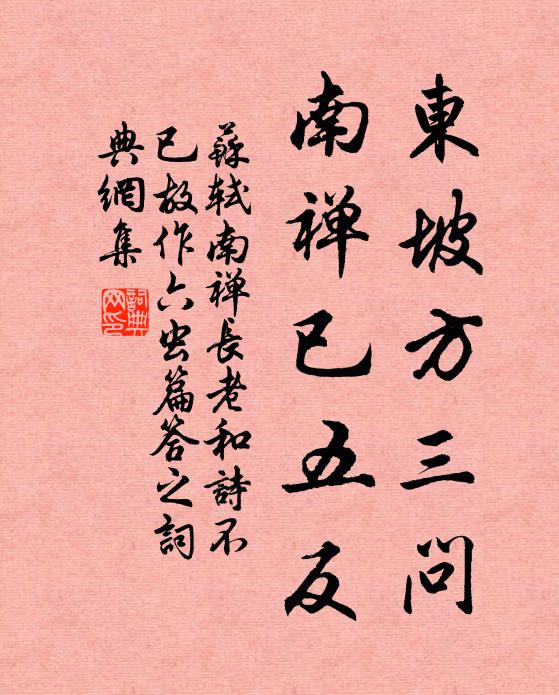 東坡方三問
南禅已五反
蘇軾南禅長老和詩不
已故作六虫篇答之詞
典網集
詞典网印